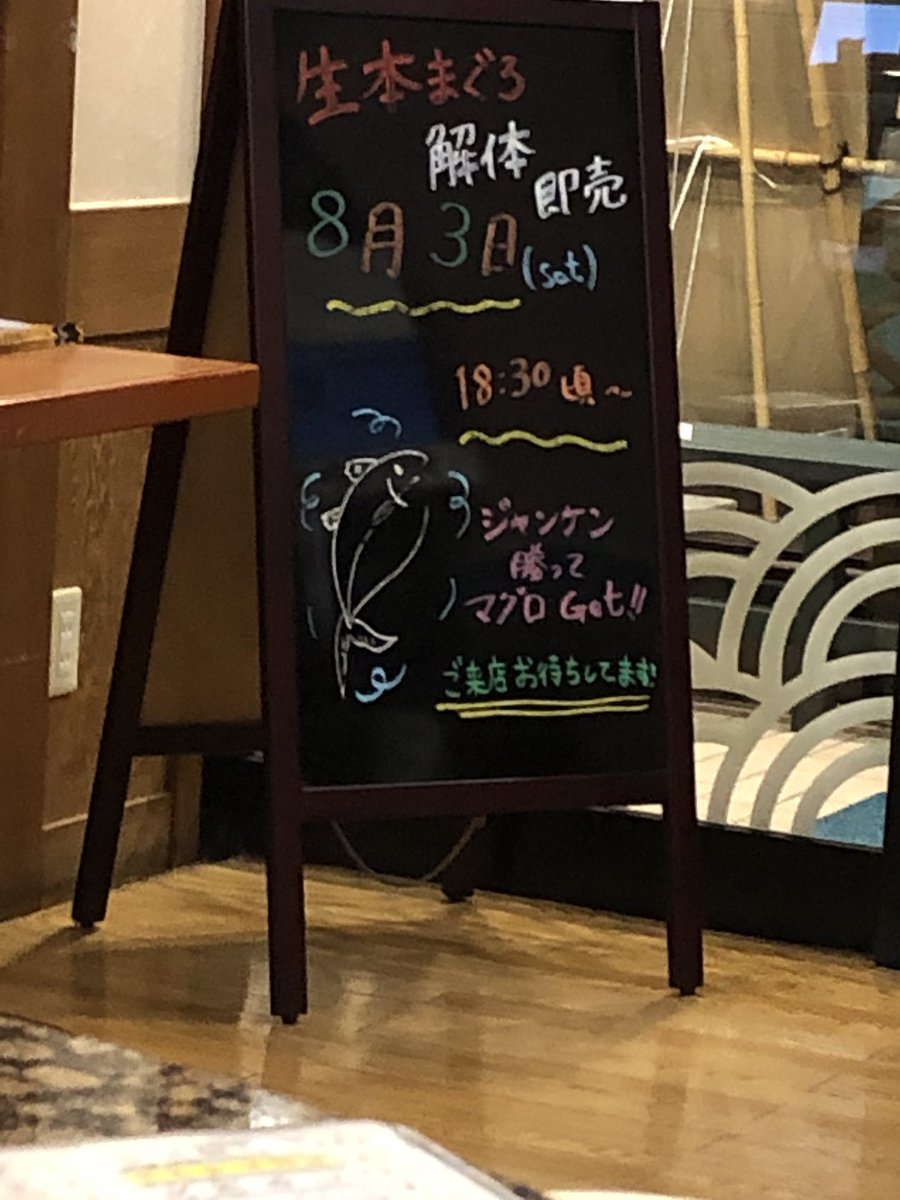 生本まぐろ
解体
即売
8月3日(sat)
18:30頃～
ジャンケン
勝って
マグロGet!!
ご来店お待ちしてます!